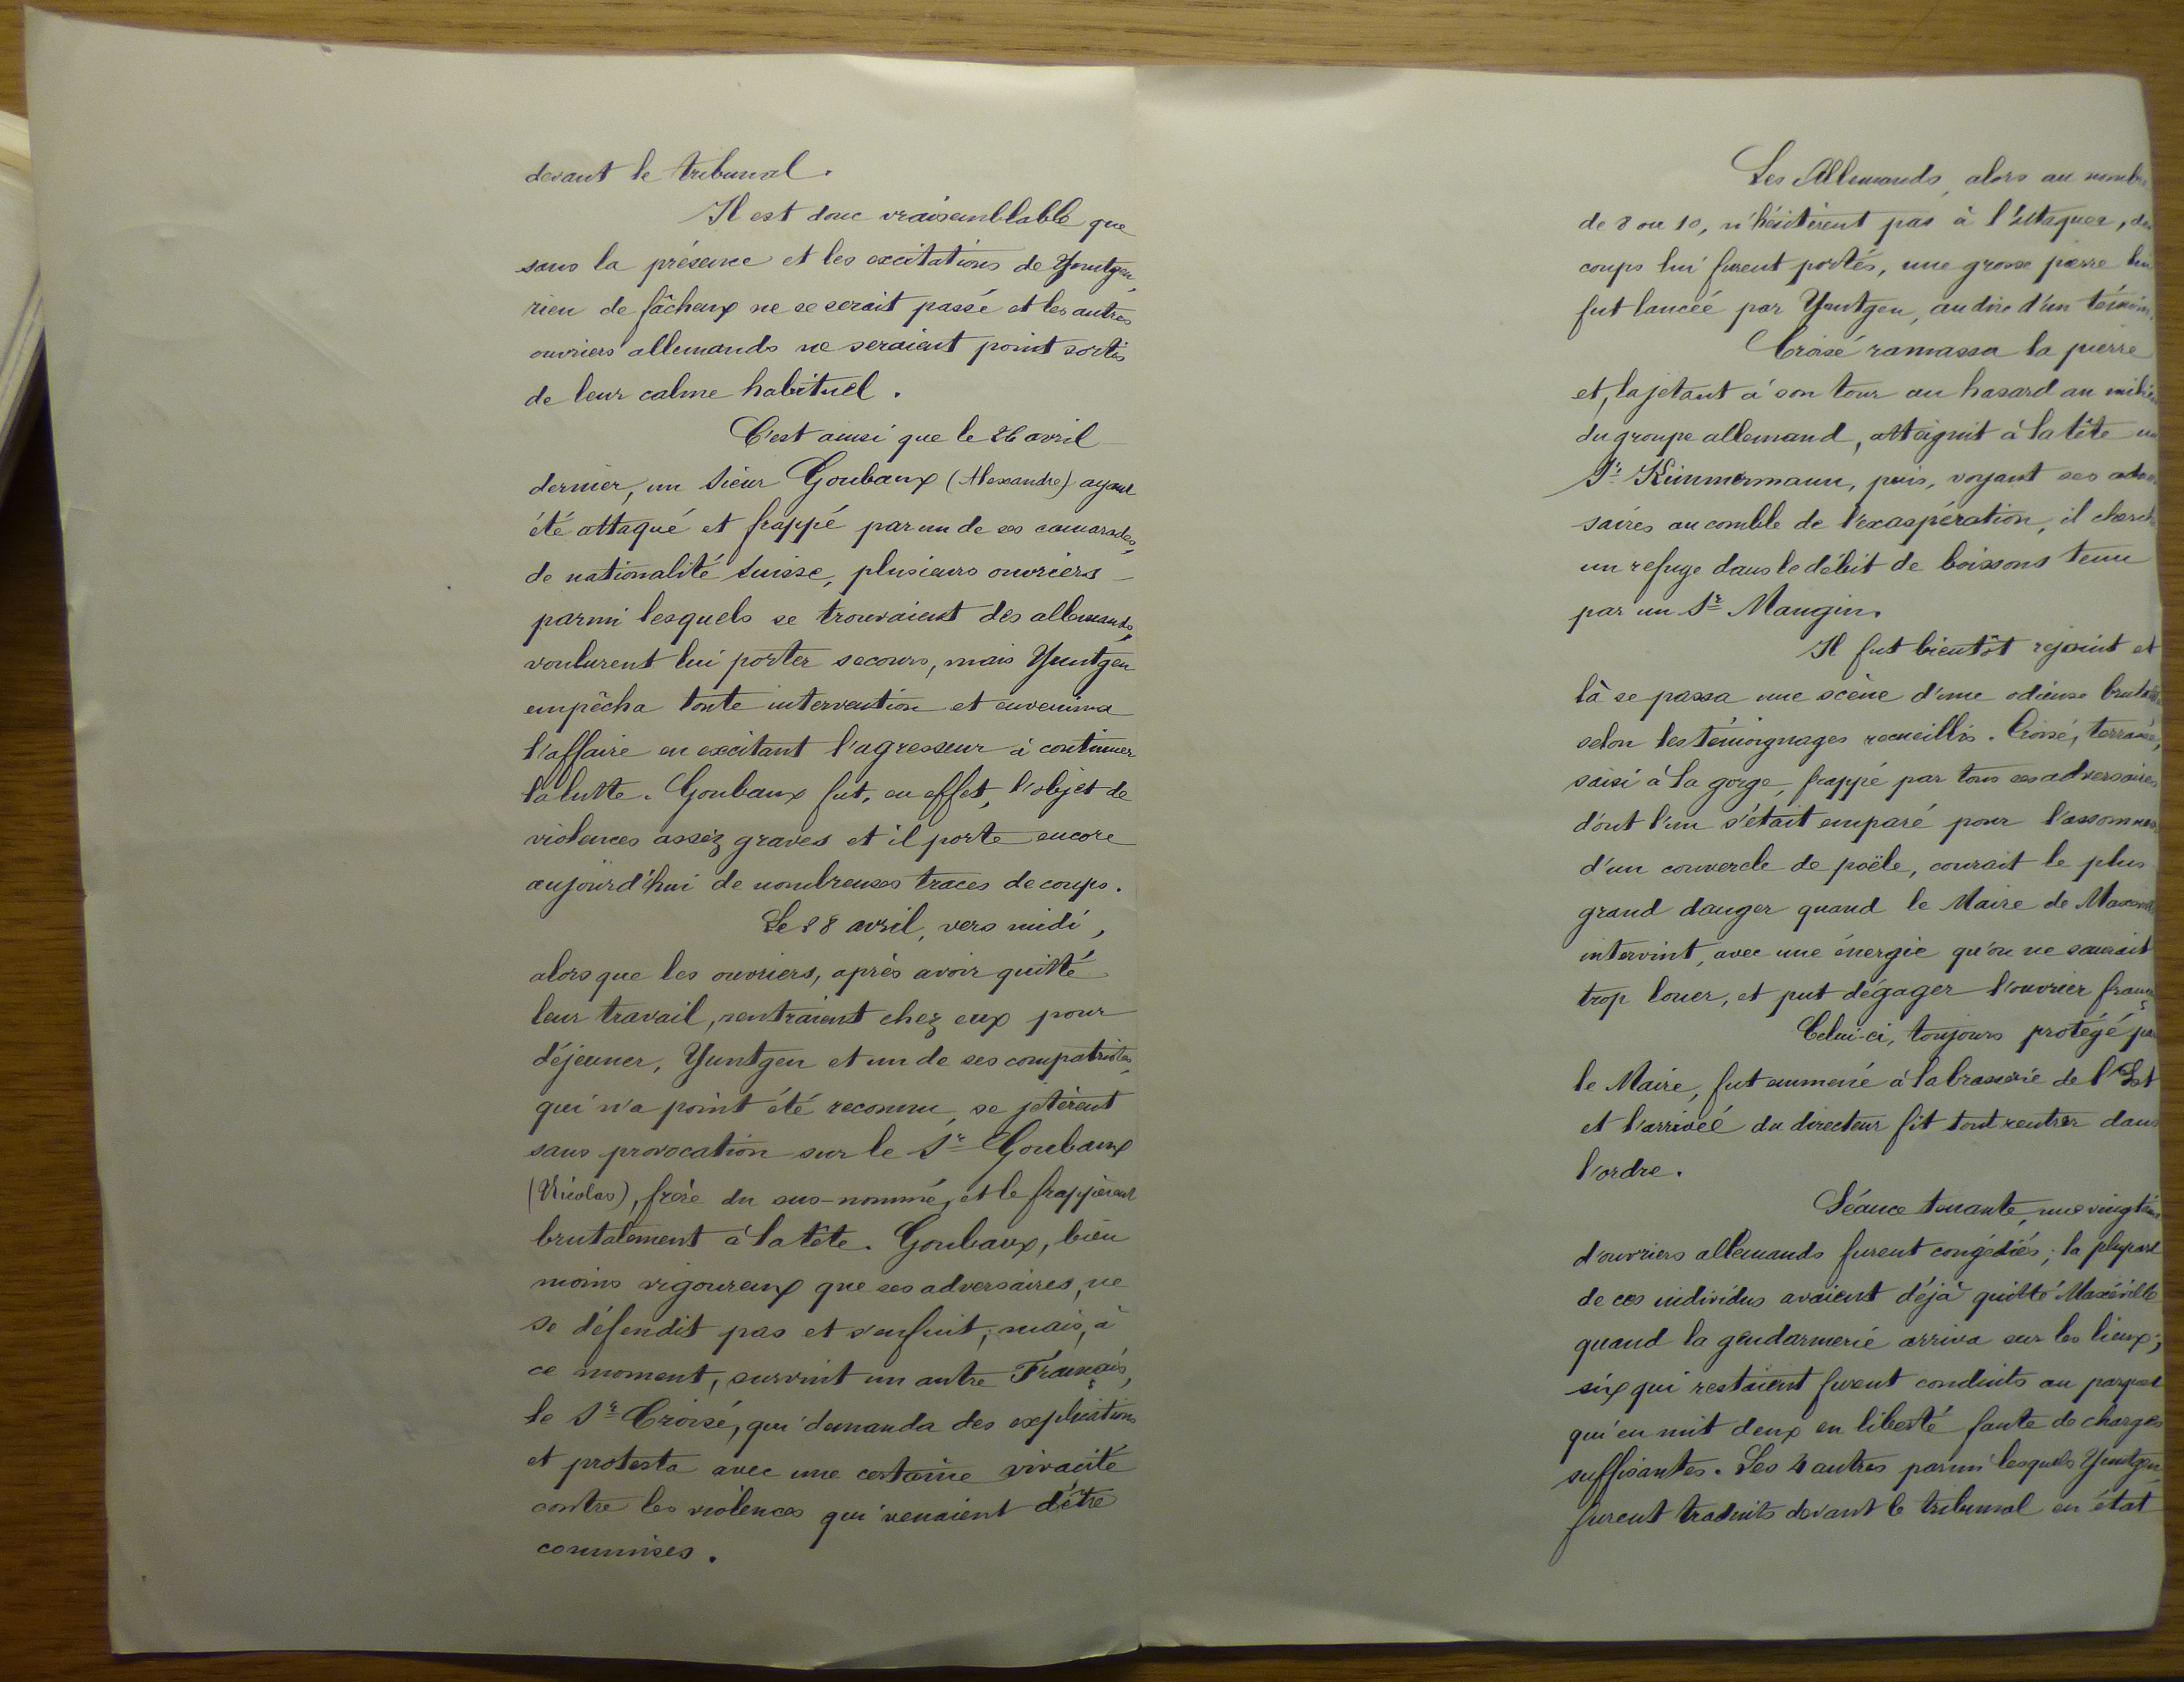 devant le tribunal.
Il est donc vraisemblable que
sans la présence et les excitations de Yuntgen,
rien de fâcheux ne se serait passé et les autres
ouvriers allemands ne seraient point sortis
de leur calme habituel.
C'est ainsi que le 26 avril
dernier, un sieur Goubaux (Alexandre) ayant
été attaqué et frappé par un de ses camarades,
de nationalité suisse, plusieurs ouvriers
parmi lesquels se trouvaient des allemands,
voulurent lui porter secours, mais Yuntgen
empêcha toute intervention et envenima
l'affaire en excitant l'agresseur à continuer
la lutte. Goubaux fut, en effet, l'objet de
violences assez graves et il porte encore
aujourd'hui de nombreuses traces de coups.
Le 28 avril, vers midi,
alors que les ouvriers, après avoir quitté
leur travail, rentraient chez eux pour
déjeuner, Yuntgen et un de ses compatriotes,
qui n'a point été reconnu, se jetèrent
sans provocation sur le Sr Goubaux
(Nicolas), frère du sus-nommé, et le frappèrent
brutalement à la tête. Goubaux, bien
moins vigoureux que ses adversaires, ne
se défendit pas et s'enfuit; mais, à
ce moment, survint un autre Français,
le Sr Croisé, qui demanda des explications
et protesta avec une certaine vivacité
contre les violences qui venaient d'être
commises.
Les Allemands, alors au nombre
de 8 ou 10, n'hésitèrent pas à l'attaquer, des
coups lui furent portés, une grosse pierre lui
fut lancée par Yuntgen, au dire d'un témoin.
Croisé ramassa la pierre
et, la jetant à son tour au hasard au milieu
du groupe allemand, atteignit à la tête un
Sr Kimmermann, puis, voyant ses adver
saires au comble de l'exaspération, il chercha
un refuge dans le débit de boissons tenu
par un Sr Mangin.
Il fut bientôt rejoint et
là se passa une scène d'une odieuse brutalité
selon les témoignages recueillis. Croisé, terrassé,
saisi à la gorge, frappé par tous ses adversaires
dont l'un s'était emparé pour l'assommer
d'un couvercle de poële, courait le plus
grand danger quand le Maire de Maxéville
intervint, avec une énergie qu'on ne saurait
trop louer, et put dégager l'ouvrier français
Celui-ci, toujours protégé par
le Maire, fut emmené à la brasserie de l'Est
et l'arrivée du directeur fit tout rentrer dans
l'ordre.
Séance tenante, une vingtaine
d'ouvriers allemands furent congédiés; la plupart
de ces individus avaient déjà quitté Maxéville
quand la gendarmerie arriva sur les lieux;
six qui restaient furent conduits au parquet
qui en mit deux en liberté faute de charges
suffisantes. Les 4 autres parmi lesquels Yuntgen
furent traduits devant le tribunal en état